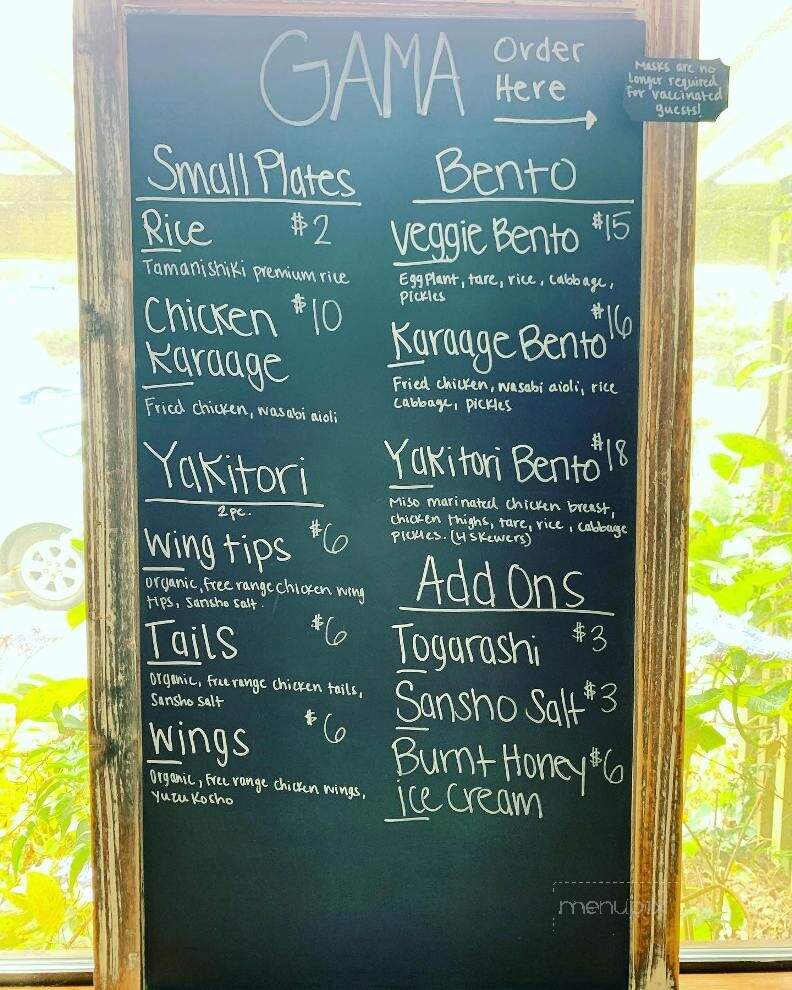 GAMA
Order
Here
Masks are no
longer required
for vaccinated
guests!
Small Plates
Rice $2
Tamanishiki premium rice
Chicken $10
Karaage
Fried chicken, wasabi aioli
Yakitori
2pc.
Wing tips $6
Organic, free range chicken wing
tips, Sansho salt.
Tails $6
Organic, free range chicken tails,
Sansho salt
Wings $6
Organic, free range chicken wings,
Yuzu Kosho
Bento
Veggie Bento $15
Eggplant, tare, rice, cabbage,
pickles
Karaage Bento $16
Fried chicken, wasabi aioli, rice
cabbage, pickles
Yakitori Bento $18
Miso marinated chicken breast,
chicken thighs, tare, rice, cabbage
pickles. (4 Skewers)
Add Ons
Togarashi $3
Sansho Salt $3
Burnt Honey $6
ice cream
menupix